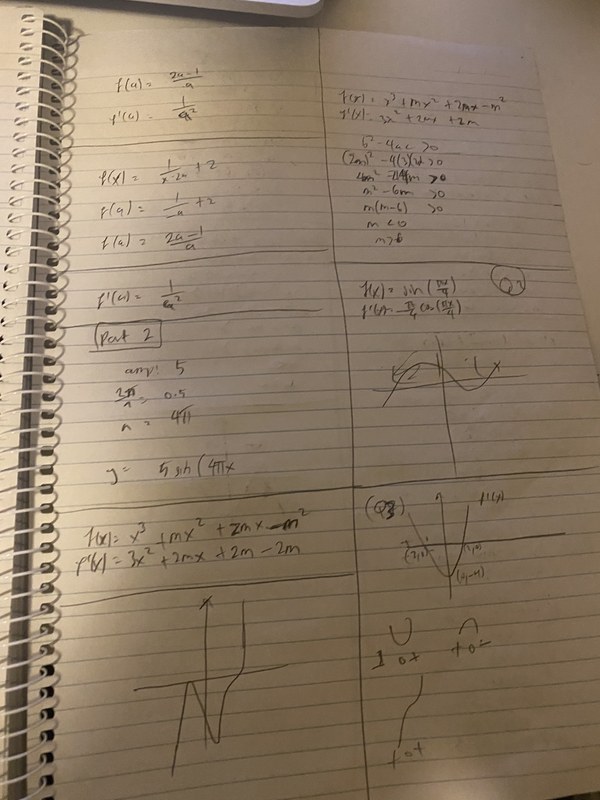 f(a) = 2a-1/a
f'(a) = 1/a²
f(x) = 1/x-2a + 2
f(a) = 1/-a + 2
f(a) = 2a-1/a
f'(a) = 1/a²
Part 2
amp: 5
2π/n = 0.5
n = 4π
y = 5 sin(4πx
f(x) = x³ + mx² + 2mx - m²
f'(x) = 3x² + 2mx + 2m - 2m
f(x) = x³ + mx² + 2mx - m²
f'(x) = 3x² + 2mx + 2m
b² - 4ac > 0
m² - 6m > 0
m(m-6) > 0
m < 0
m > 6
f(x) = sin(πx/4)
f'(x) = π/4 cos(πx/4)
f'(x)
+ 0 -
+ 0 +